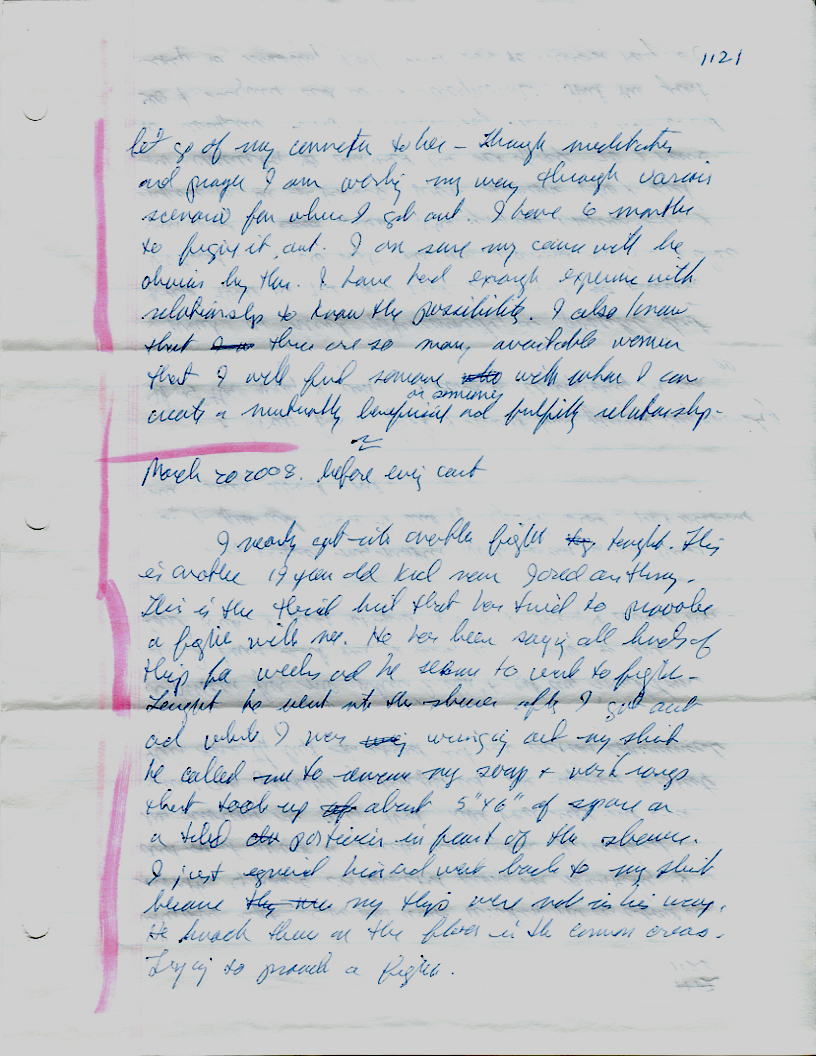 1121
let go of my connection to her – through meditation
and prayer I am working my way through various
scenarios for when I get out. I have 6 months
to figure it out. I am sure my course will be
obvious by then. I have had enough experience with
relationships to know the possibility. I also know
that there are so many available women
that I will find someone with whom I can
or someones
create a mutually beneficial and fulfilling relationship –
March 20 2008. before evening count
I nearly got into another fight tonight. This
is another 19 year old kid name Jared
This is the third kid that has tried to provoke
a fight with me. He has been saying all kinds of
things for weeks and he seems to want to fight –
Tonight he went into the shower after I got out
and while I was wringing out my shirt
he called me to remove my soap + wash rags
that took up about 5"x6" of space on
a tiled partition in front of the shower.
I just ignored him and went back to my shirt
because my things were not in his way.
He knock them on the floor in the common area –
Trying to provoke a fight.